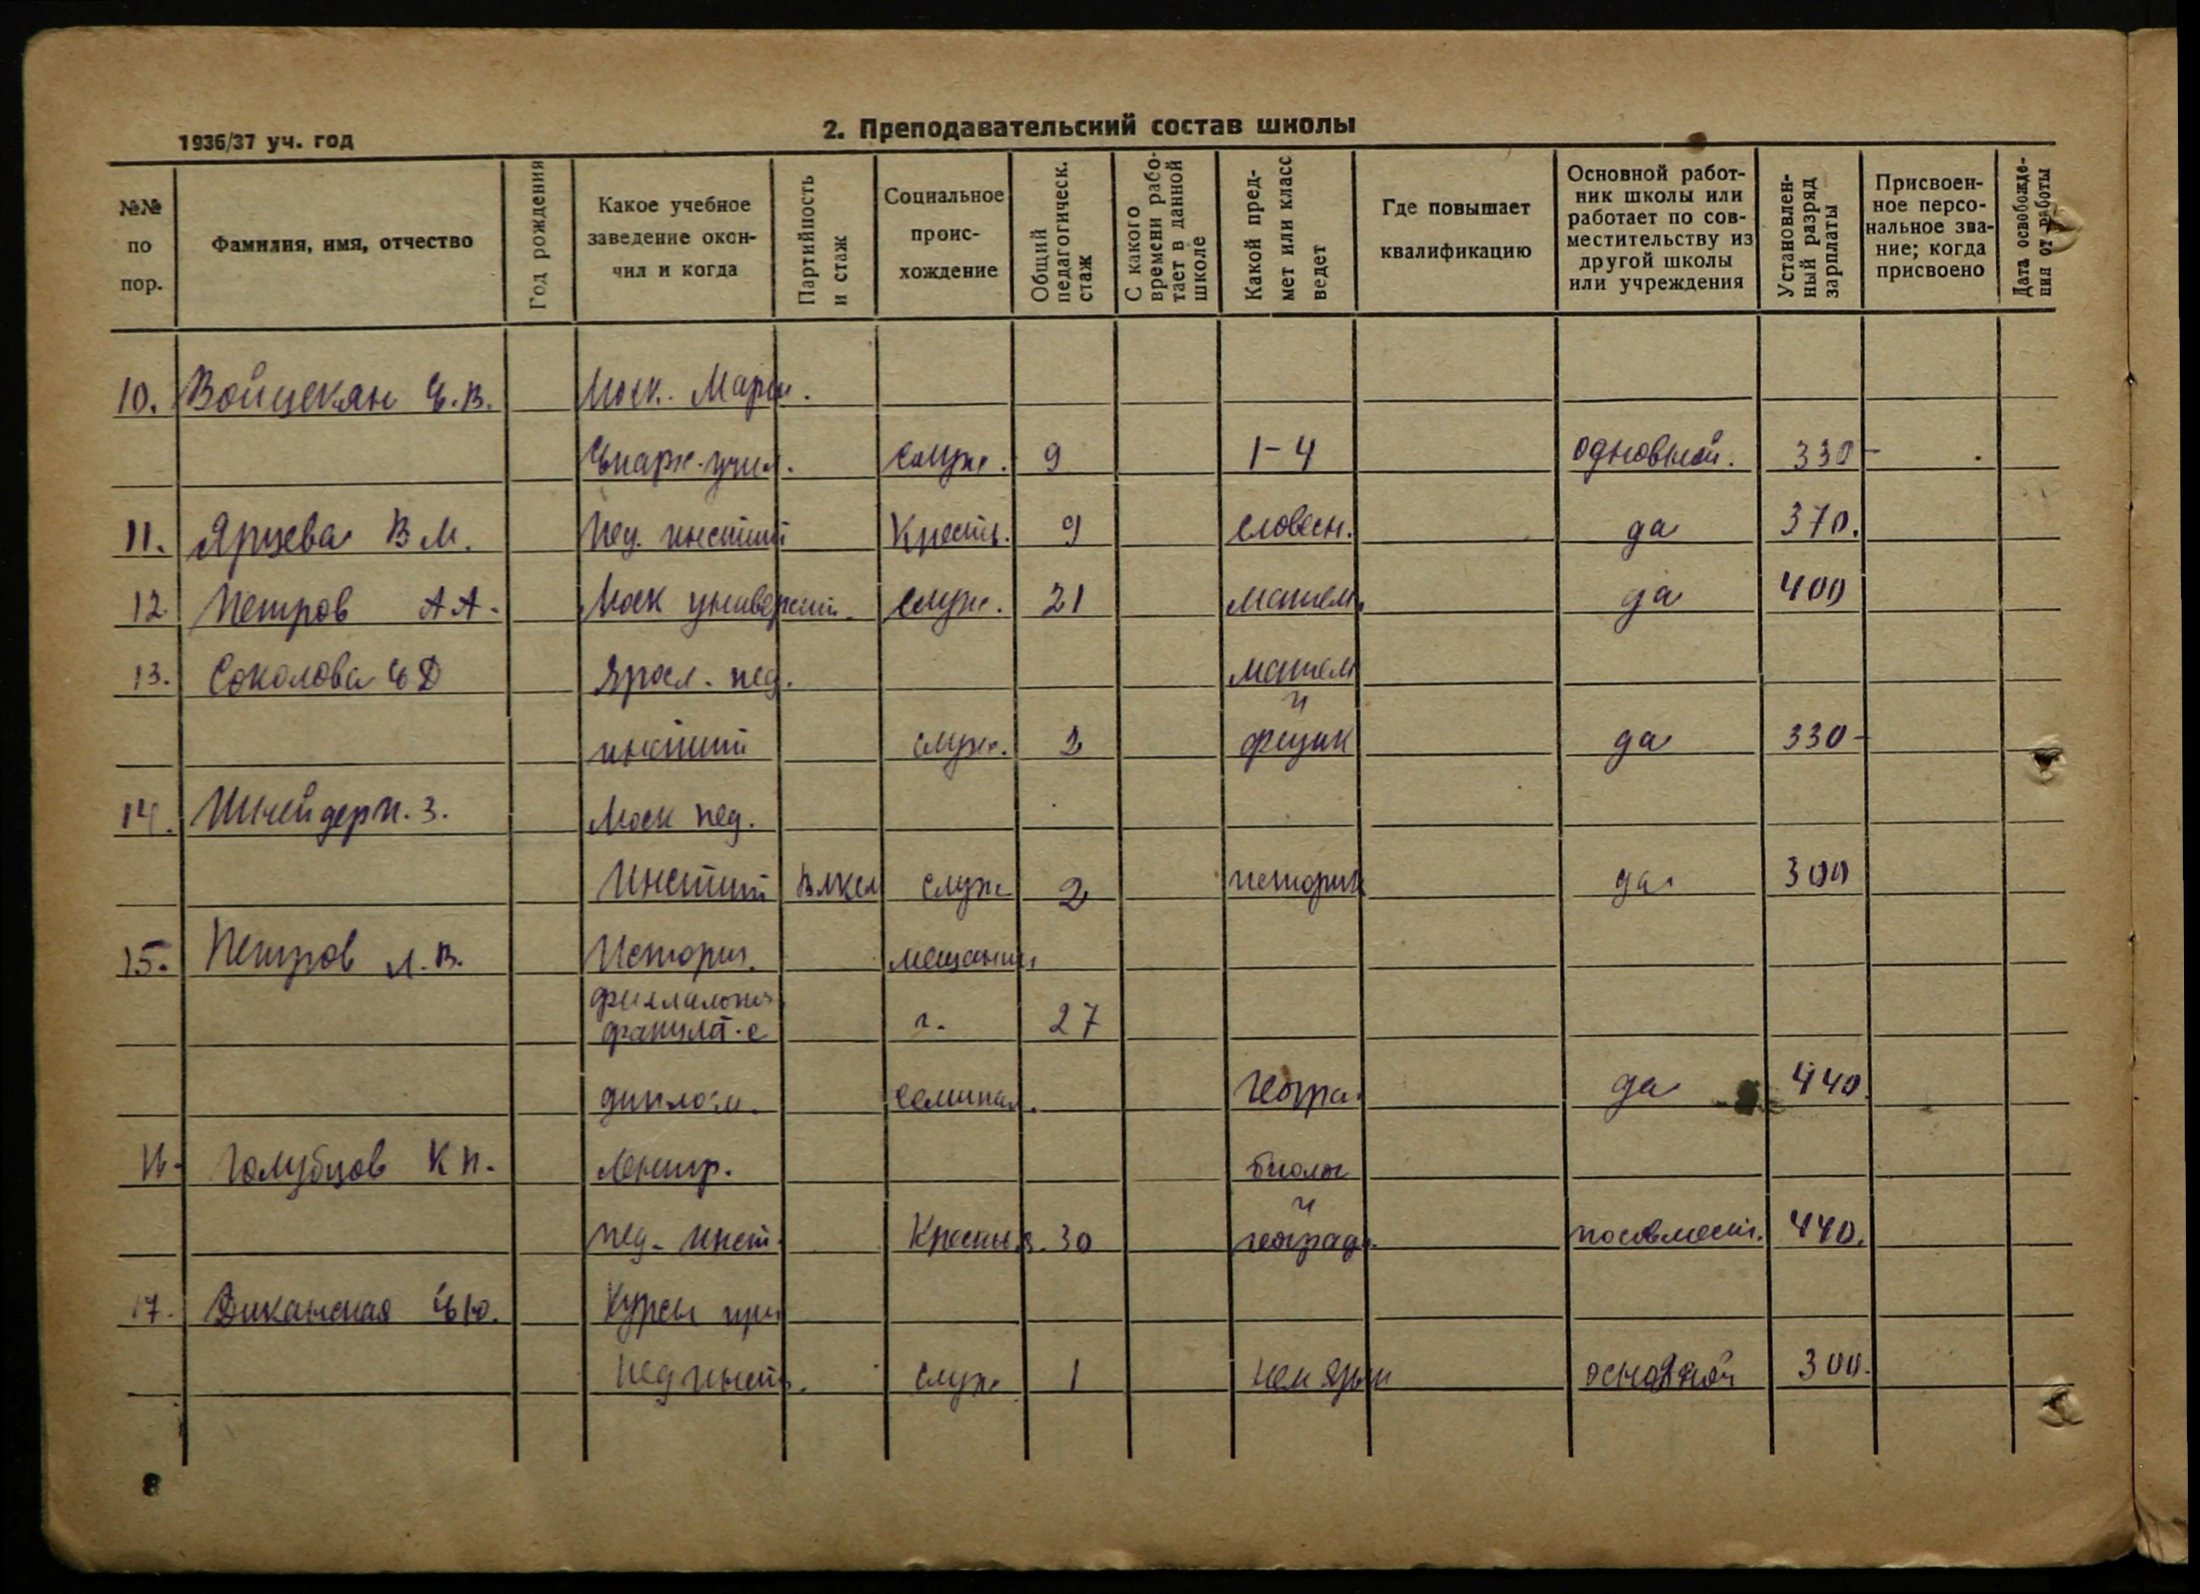 2. Преподавательский состав школы
1936/37 уч. год
№№ по пор.
Фамилия, имя, отчество
Год рождения
Какое учебное заведение окон-чил и когда
Партийность и стаж
Социальное проис-хождение
Общий педагогическ. стаж
С какого времени рабо-тает в данной школе
Какой пред-мет или класс ведет
Где повышает квалификацию
Основной работ-ник школы или работает по сов-местительству из другой школы или учреждения
Установлен-ный разряд зарплаты
Присвоен-ное персо-нальное зва-ние; когда присвоено
Дата освобожде-ния от работы
10. Войцекян Е.В. Моск. Марии.
учил. служ. 9 1-4 330-
11. Ярцева В М. Пед. институт Крестьян. 9 словесн. да 370.
12 Петров А А. Моск университ. служ. 21 матем. да 400
13. Соколова Е Д Яросл. пед. матем
и
институт служ. 2 физик да 330-
14. Шнейдер И. З. Моск пед.
Институт Влксм служ 2 истории да 300
15. Петров Л. В. Историч. мещанин
филологич.
факульт-е г. 27
диплом. семинар. геогра. да 440
16. Голубцов К П. Ленингр. биолог
и
пед. инст. Крестьян. 30 географ. по совмест. 440.
17. Диканская Е Ю. Курсы при
Пед инст. служ 1 нем язык основной 300.
8